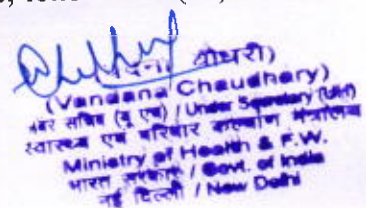 चौधरी)
(Vandana Chaudhary)
अवर सचिव (यू एच) / Under Secretary (UH)
स्वास्थ्य एवं परिवार कल्याण मंत्रालय
Ministry of Health & F.W.
भारत सरकार / Govt. of India
नई दिल्ली / New Delhi